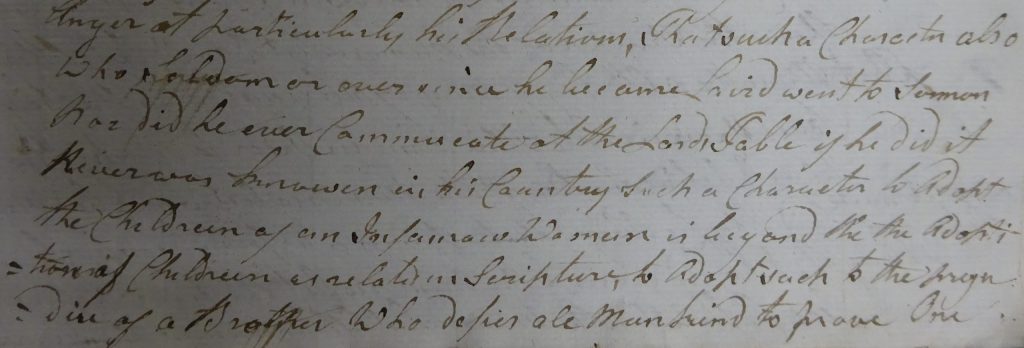 Anger at particularly his Relations, That such a Character also
Who Seldom or ever since he became Laird went to Sermon
Nor did he ever Commucate at the Lords Table if he did it
Never wasknowen in his Countrey Such a Character to Adopt
the Children of an Infamow Woman is beyond the the Adopti
=tion of Children as relat in Scripture, to Adopt such to the preju
=dice of a Brother Who defies all Mankind to prove One